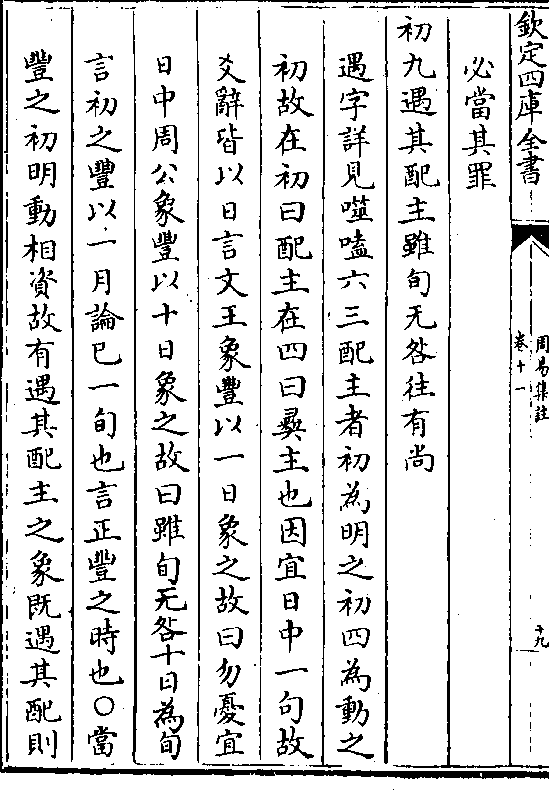 欽定四庫全書
周易集註
卷十一
十九
必當其罪
初九遇其配主雖旬无咎往有尚
遇字詳見噬嗑六三配主者初為明之初四為動之
初故在初曰配主在四曰夷主也因宜日中一句故
爻辭皆以日言文王象豐以一日象之故曰勿憂宜
日中周公象豐以十日象之故曰雖旬无咎十日為旬
言初之豐以一月論已一旬也言正豐之時也○當
豐之初明動相資故有遇其配主之象既遇其配則